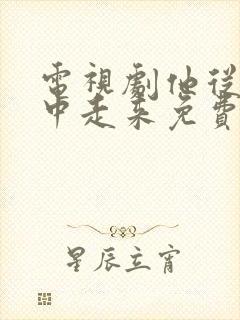 電視劇他從
中走來免費
星辰立宵